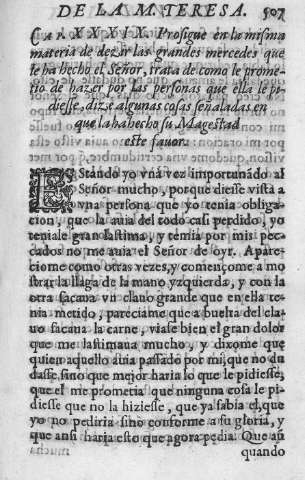 DE LA M. TERESA. 507
CAP. XXXIX. Prosigue en la misma
materia de dezir las grandes mercedes que
le ha hecho el Señor, trata de como le prome-
tio de hazer por las personas que ella le pi-
diesse, dize algunas cosas señaladas en
que la ha hecho su Magestad
este fauor.
EStando yo vna vez importunãdo al
Señor mucho, porque diesse vista a
vna persona que yo tenia obliga-
cion, que la auia del todo casi perdido, yo
teniale gran lastima, y temia por mis pec-
cados no me auia el Señor de oyr. Apare-
ciome como otras vezes, y començome a mo
strar la llaga de la mano yzquierda, y con la
otra sacaua vn clauo grande que en ella te-
nia metido, pareciame que a buelta del cla-
uo sacaua la carne, viase bien el gran dolor
que me lastimaua mucho, y dixome que
quien aquello auia passado por mi, que no du
dasse, sino que mejor haria lo que le pidiesse,
que el me prometia que ninguna cosa le pi-
diesse que no la hiziesse, que ya sabia el, que
yo no pediria sino conforme a su gloria, y
que ansi haria esto que agora pedia. Que aũ
quando